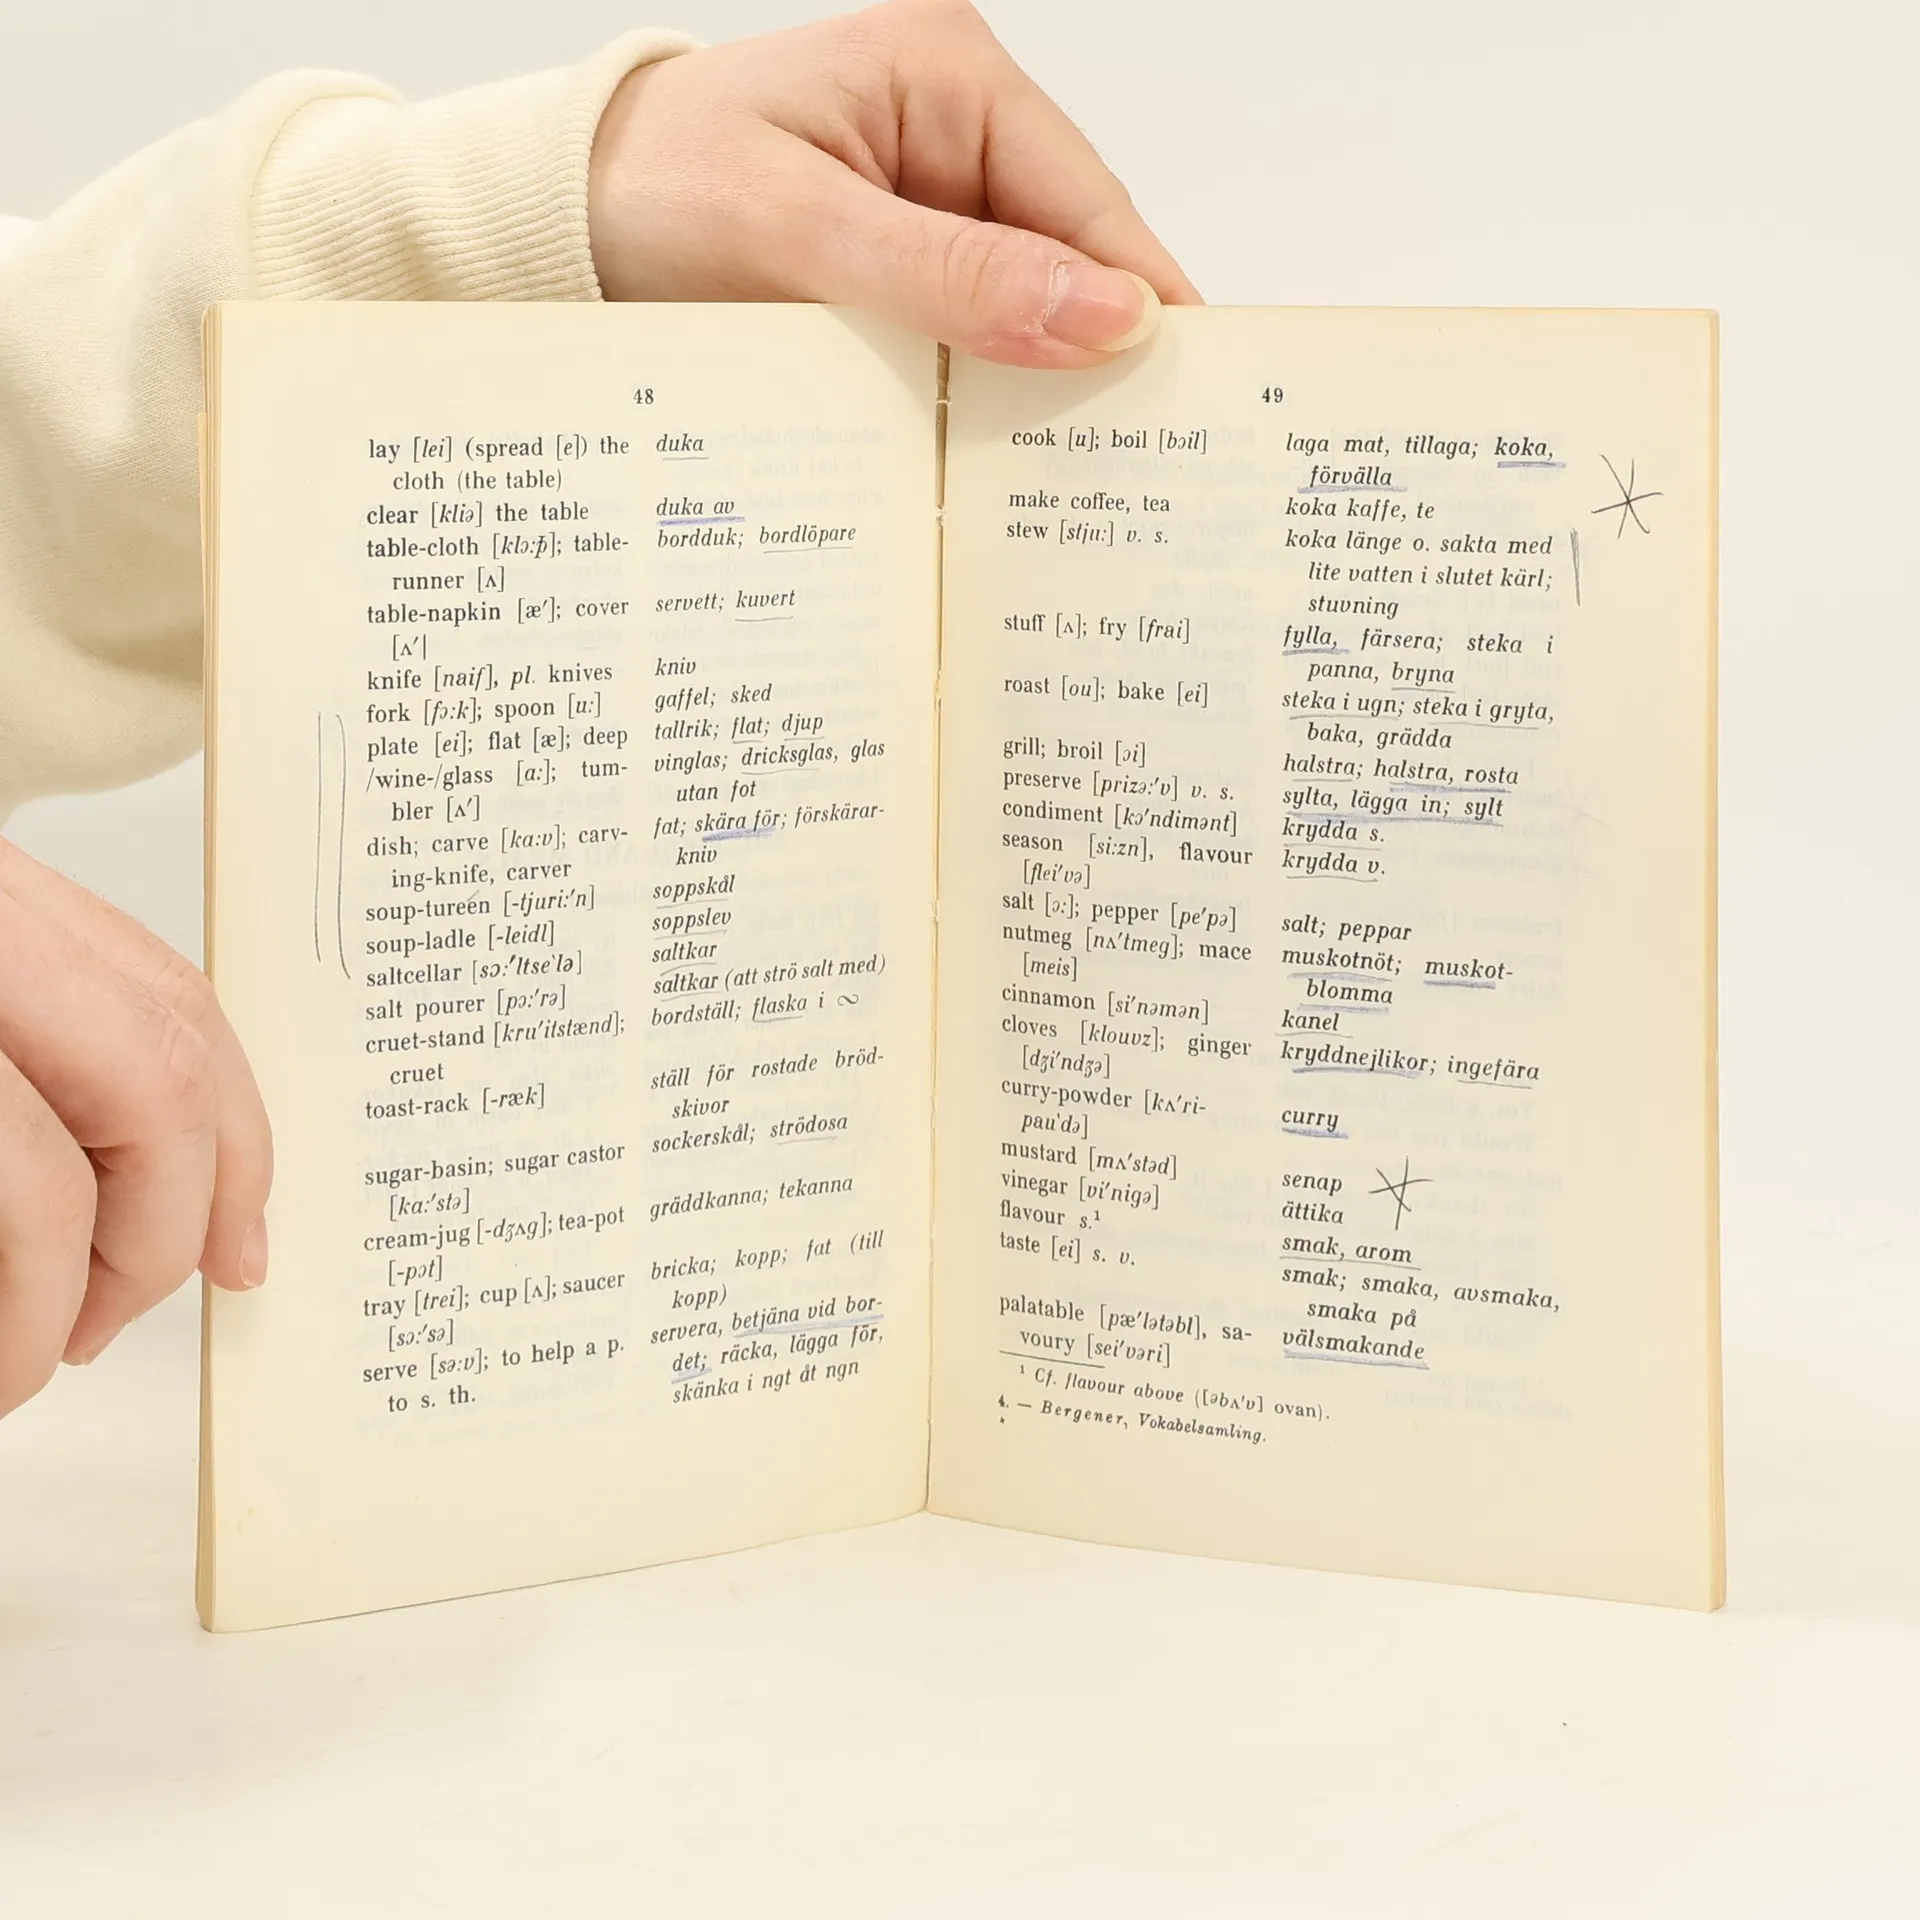 48
lay [lei] (spread [e]) the
cloth (the table)
clear [kliə] the table
table-cloth [klɔ:þ]; table-
runner [ʌ]
table-napkin [æ′]; cover
[ʌ′|
knife [naif], pl. knives
fork [fɔ:k]; spoon [u:]
plate [ei]; flat [æ]; deep
/wine-/glass [a:]; tum-
bler [ʌ′]
dish; carve [ka:v]; carv-
ing-knife, carver
soup-tureen [-tjuri:′n]
soup-ladle [-leidl]
saltcellar [sɔ:′ltse`lə]
salt pourer [pɔ:′rə]
cruet-stand [kru′itstænd];
cruet
toast-rack [-ræk]
sugar-basin; sugar castor
[ka:′stə]
cream-jug [-dʒʌg]; tea-pot
[-pɔt]
tray [trei]; cup [ʌ]; saucer
[sɔ:′sə]
serve [sə:v]; to help a p.
to s. th.
duka
duka av
bordduk; bordlöpare
servett; kuvert
kniv
gaffel; sked
tallrik; flat; djup
vinglas; dricksglas, glas
utan fot
fat; skära för; förskärar-
kniv
soppskål
soppslev
saltkar
saltkar (att strö salt med)
bordställ; flaska i ∾
ställ för rostade bröd-
skivor
sockerskål; strödosa
gräddkanna; tekanna
bricka; kopp; fat (till
kopp)
servera, betjäna vid bor-
det; räcka, lägga för,
skänka i ngt åt ngn
49
cook [u]; boil [bɔil]
make coffee, tea
stew [stju:] v. s.
stuff [ʌ]; fry [frai]
roast [ou]; bake [ei]
grill; broil [ɔi]
preserve [prizə:′v] v. s.
condiment [kɔ′ndimənt]
season [si:zn], flavour
[flei′və]
salt [ɔ:]; pepper [pe′pə]
nutmeg [nʌ′tmeg]; mace
[meis]
cinnamon [si′nəmən]
cloves [klouvz]; ginger
[dʒi′ndʒə]
curry-powder [kʌ′ri-
pau`də]
mustard [mʌ′stəd]
vinegar [vi′nigə]
flavour s.¹
taste [ei] s. v.
palatable [pæ′lətəbl], sa-
voury [sei′vəri]
laga mat, tillaga; koka,
förvälla
koka kaffe, te
koka länge o. sakta med
lite vatten i slutet kärl;
stuvning
fylla, färsera; steka i
panna, bryna
steka i ugn; steka i gryta,
baka, grädda
halstra; halstra, rosta
sylta, lägga in; sylt
krydda s.
krydda v.
salt; peppar
muskotnöt; muskot-
blomma
kanel
kryddnejlikor; ingefära
curry
senap
ättika
smak, arom
smak; smaka, avsmaka,
smaka på
välsmakande
¹ Cf. flavour above ([əbʌ′v] ovan).
4. — Bergener, Vokabelsamling.